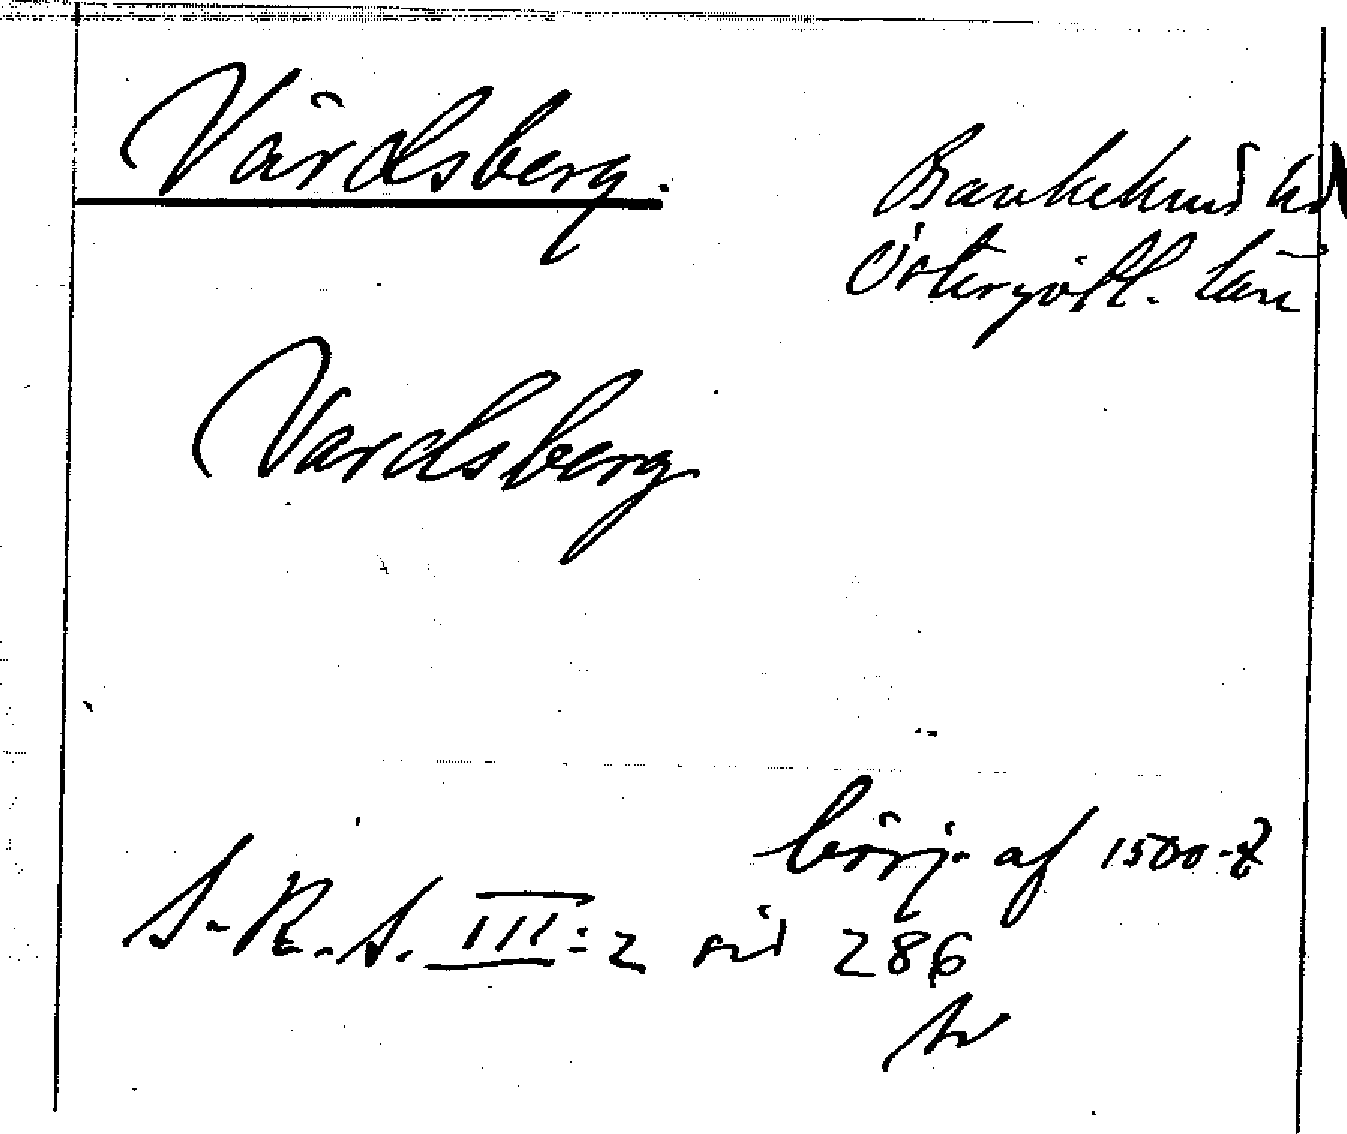 Vårdsberg.
Bankekind hd
Östergötl. län
Vardsberg
börj. af 1500-t
S.R.S. III:2 sid 286